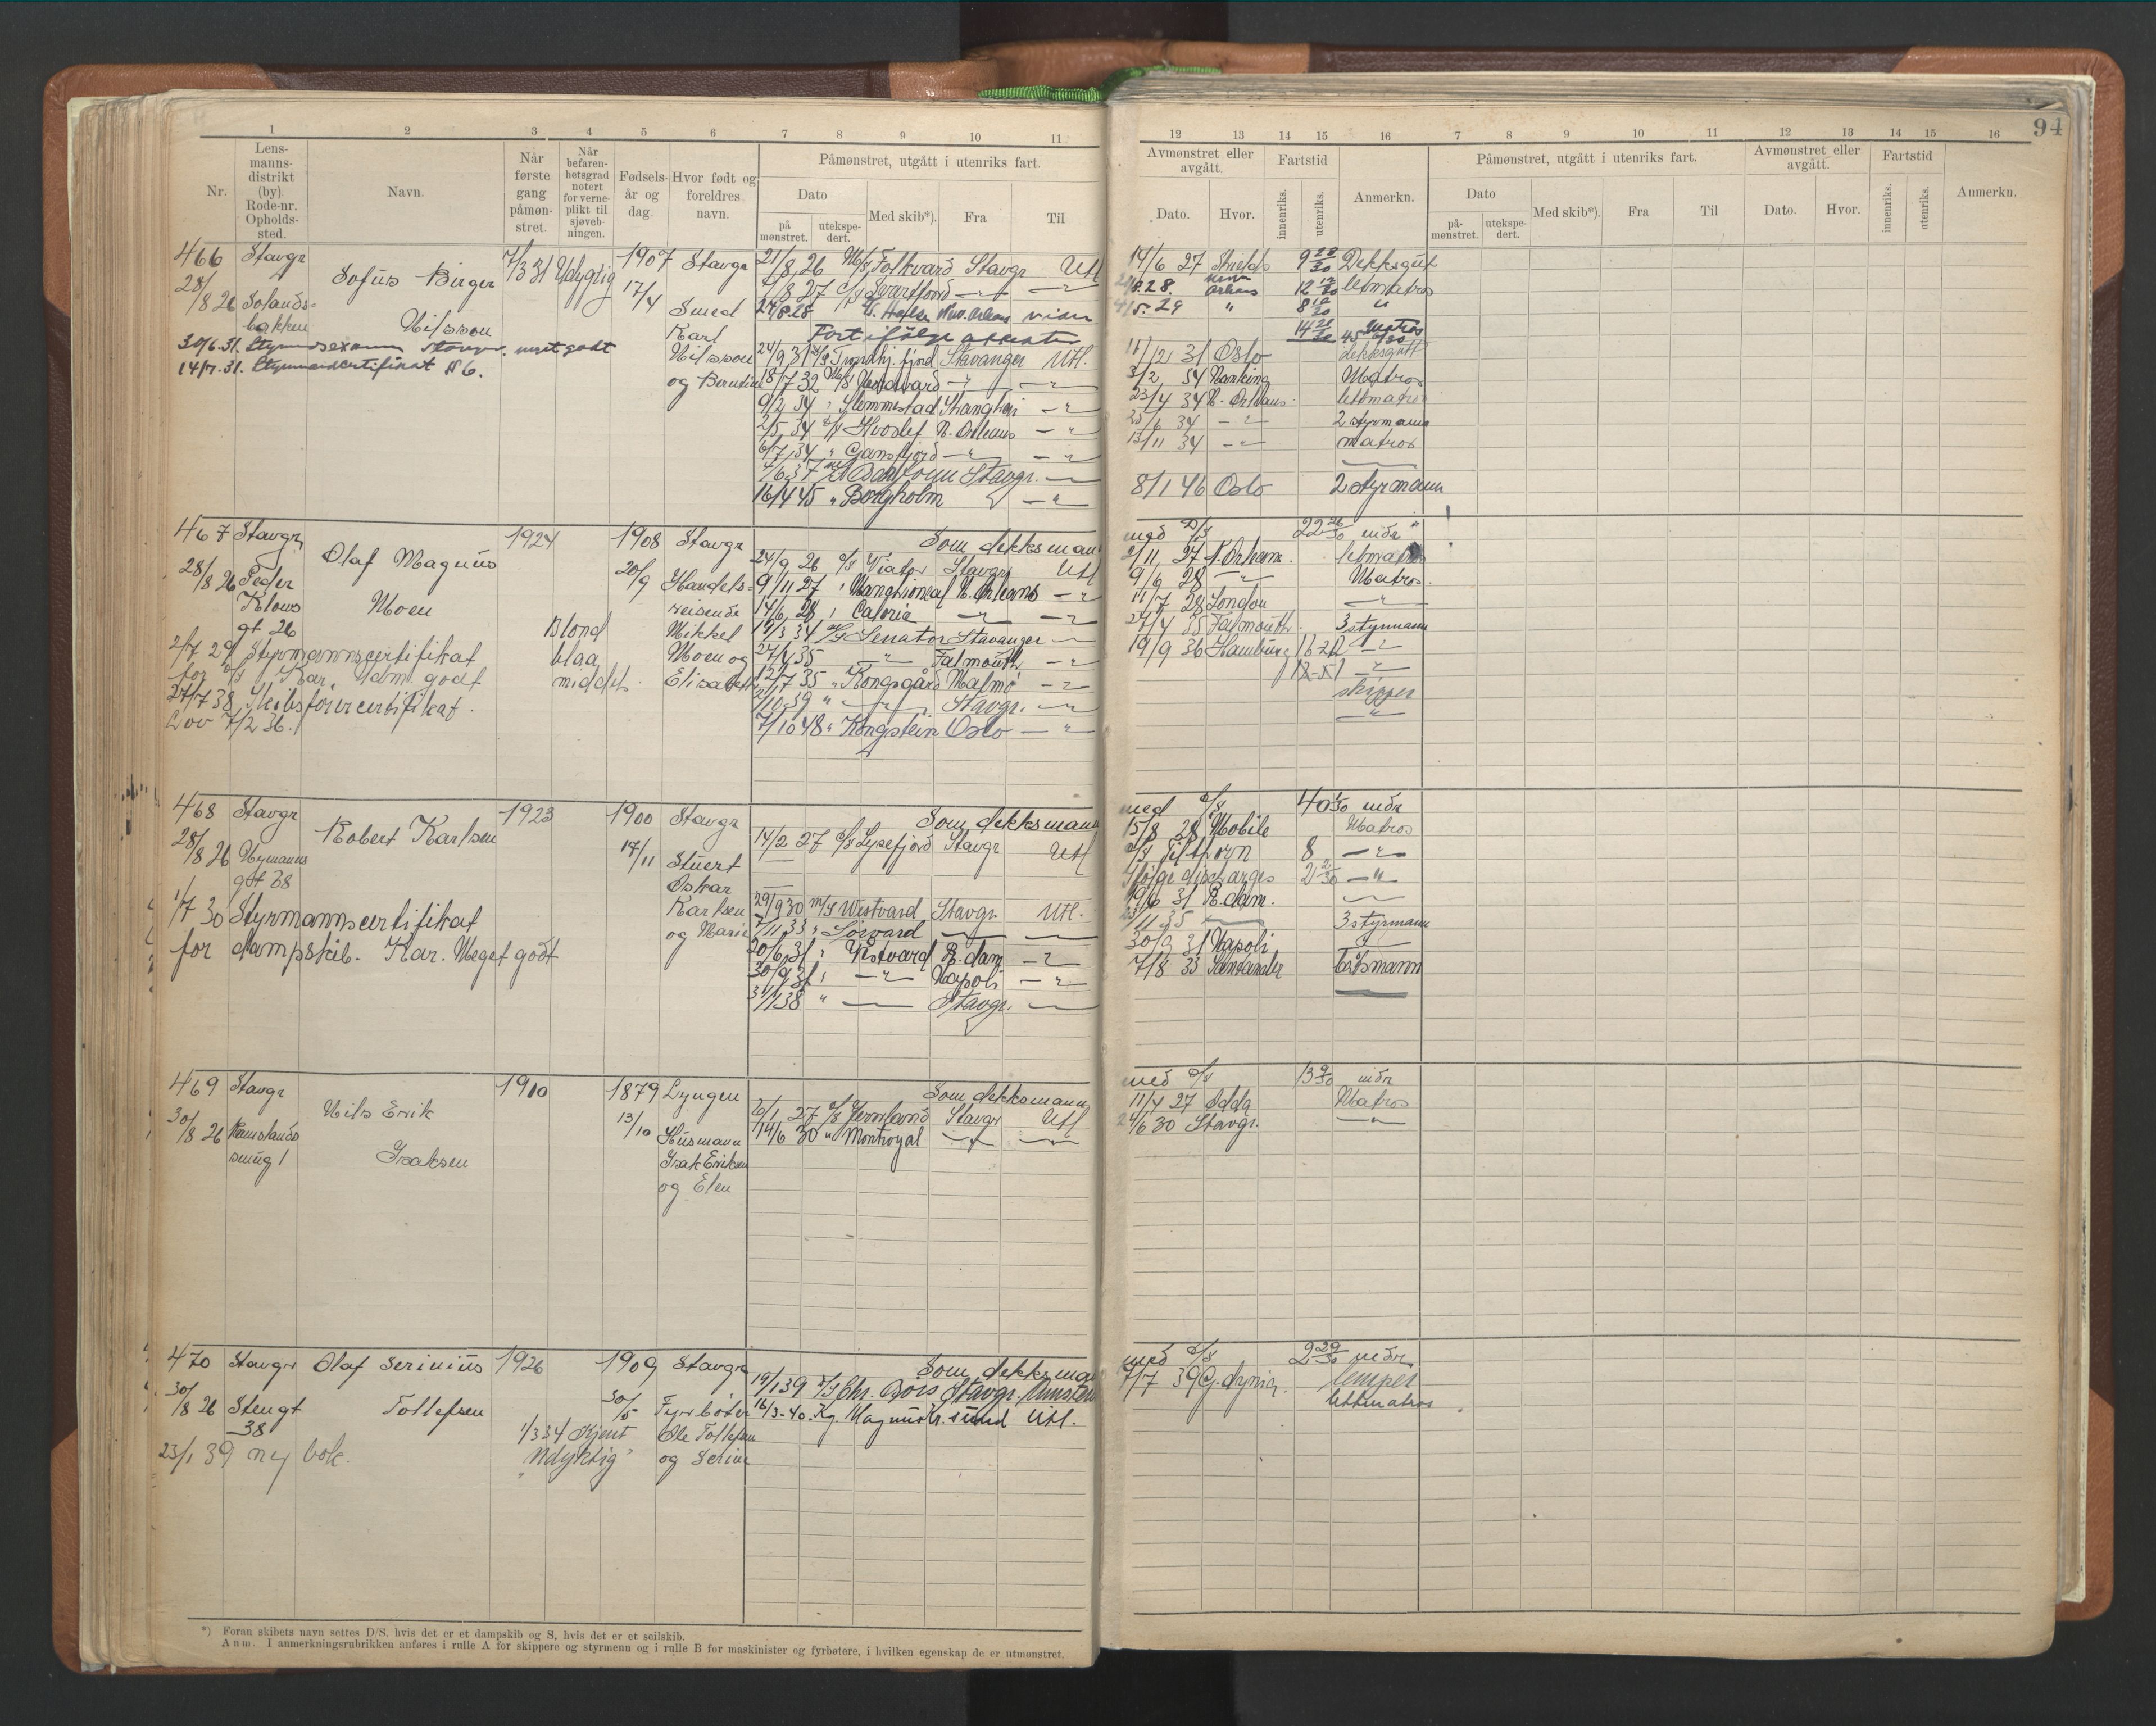 94
1 2 3 4 5 6 7 8 9 10 11
12 13 14 15 16 7 8 9 10 11 12 13 14 15 16
Nr.
Lens-
manns-
distrikt
(by).
Rode-nr.
Opholds-
sted.
Navn.
Når
første
gang
påmøn-
stret.
Når
befaren-
hetsgrad
notert
for verne-
plikt til
sjøveb-
ningen.
Fødsels-
år og
dag.
Hvor født og
foreldres
navn.
Påmønstret, utgått i utenriks fart.
Dato
på
mønstret.
utekspe-
dert.
Med skib*).
Fra
Til
Avmønstret eller
avgått.
Dato.
Hvor.
Fartstid
innenriks.
utenriks.
Anmerkn.
Påmønstret, utgått i utenriks fart.
Dato
på-
mønstret.
utekspe-
dert.
Med skib*).
Fra
Til
Avmønstret eller
avgått.
Dato.
Hvor.
Fartstid
innenriks.
utenriks.
Anmerkn.
466 Stavgr
28/8 26 Solands-
bakken
Sofus Birger
Nilsson
7/3 31 Udygtig
1907
17/4
Stavgr
Smed
Karl
Nilsson
og Berntine
30/6.31. Styrmandsexamen Stavgr. meget godt
14/7.31. Styrmandcertifikat N 6.
21/8 26 M/S Folkvard Stavgr Utl
8 27 Svartfoord
24/8.28
24/9 31 Trondhj. fjord Stavanger Utl.
18/7 32 M/S Nordvard
9/2 34 " Slemmestad Shanghai
2/5 34 Hvoslef N. Orleans
6/7 34 " Gansfjord
Stavgr.
16/4 45 " Borgholm
14/6 27 9 28/30 Dekksgut
8.28. New Orleans letmatros
4/5-29 "
31 Oslo dekksgutt
3/2 34 Nanking Matros
23/4 34 N. Orleans letmatros
25/6 34 2 styrmann
13/11 34 matros
8/1 46 Oslo 2 styrmann
467 Stavgr
28/8 26 Peder
Klows
gt 26
Olaf Magnus
Moen
1924
Blond
blaa
middels
1908
20/9
Stavgr
Handels-
reisende
Mikkel
Moen og
Elisabeth
2/7 29 Styrmannscertifikat
for D/S Kar. Udm. godt
27/7 38 Skibsførercertifikat.
Lov 7/2 36.
Som dekksmann
24/9 26 D/S Viator Stavgr Utl
9/11 27 N. Orleans
14/6 28 "
19/3 34 Senator Stavanger
27/4 35 Falmouth
12/7 35 " Kongsgård Malmö
2/10 39 " Stavgr.
7/10 48 " Kongstein Oslo
med D/S 22 26/30 mdr
2/11 27 N. Orleans. letmatros
9/6 28 Matros.
11/7 28 London
27/4 35 Falmouth. 3 styrmann
19/9 36 Hamburg
skipper
468 Stavgr
28/8 26 Nymanns
gt 38
Robert Karlsen
1923
1900
17/11
Stavgr
Stuert
Oskar
Karlsen
og Marie
1/7 30 Styrmannscertifikat
for dampskib. Kar. Meget godt
Som dekksmann
14/2 27 D/S Lysefjord Stavgr Utl
29/9 30 M/S Westvard Stavgr. Utl.
7/11 33 " Sørvard
20/6 31 " Vestvard R. dam
30/9 31 " Napoli
31/1 38 " Stavgr.
med D/S 40 mdr
15/8 28 Mobile Matros
8
Ifølge discharges
19/6 31 R. dam.
11 35 3 styrmann
30/9 31 Napoli
7/8 33 Santander båtsmann
469 Stavgr
30/8 26 Ramslands
smug 1
Nils Erik
Isaksen
1910
1879
13/10
Lyngen
Husmann
Isak Eriksen
og Elen
Som dekksmann
6/1 27 D/S Jernland Stavgr Utl
14/6 30 " Montroyal
med D/S 13 9/30 mdr
11/4 27 Odda Matros
6 30 Stavgr.
470 Stavgr
30/8 26 Stengt
38
Olaf Serinius
Tollefsen
1926
1/3 34 Kjent
"Udyktig"
1909
30/5
Stavgr
Fyrbøter
Ole Tollefsen
og Serine
23/1 39 ny bok.
Som dekksmann
19/1 39 D/S Chr. Bors Stavgr.
16/3-40. Kg. Magnus Kr. sund Utl.
med D/S 2 29/30 mdr
7/7 39 Gdynia. lemper
lettmatros
*) Foran skibets navn settes D/S, hvis det er et dampskib og S, hvis det er et seilskib.
Anm. I anmerkningsrubrikken anføres i rulle A for skippere og styrmenn og i rulle B for maskinister og fyrbøtere, i hvilken egenskap de er utmønstret.